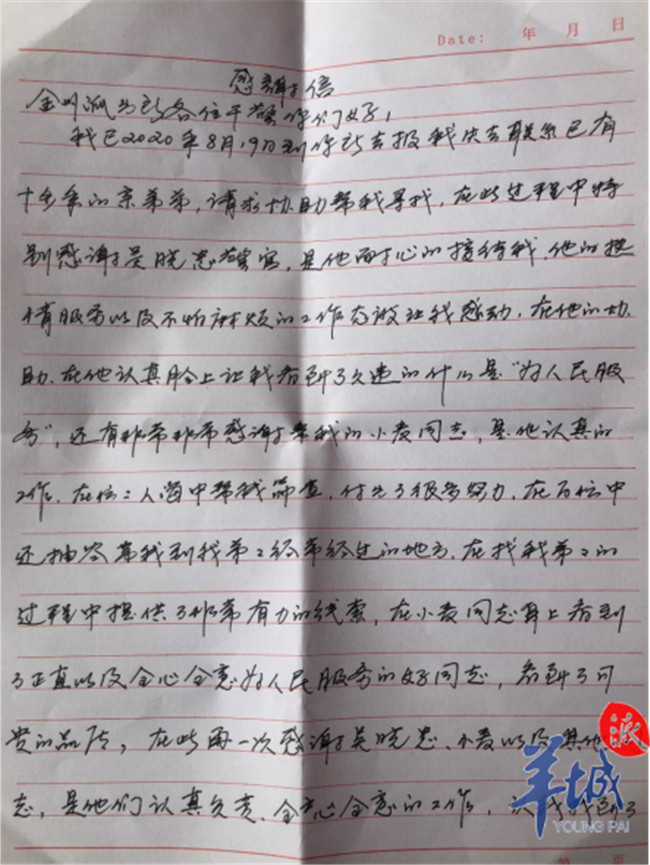 Date: 年 月 日
感謝信
金州派出所各位干警你们好,
我已2020年8月19日到你所去报我失去联系已有
十多年的亲弟弟,请求协助帮我寻找,在此过程中特
别感谢吴晓忠警官,是他耐心的接待我,他的热
情服务以及不怕麻烦的工作态度让我感动,在他的协
助.在他认真脸上让我看到了久违的什么是"为人民服
务",还有非常非常感谢帮我的小麦同志,是他认真的
工作.在 人 中帮我筛查,付出了很多努力,在百忙中
还抽空带我到我弟弟经常经过的地方.在找我弟弟的
过程中提供了非常有力的线索,在小麦同志身上看到
了正直以及全心全意为人民服务的好同志,看到了可
贵的品质,在此再一次感谢吴晓忠、小麦以及其他
志,是他们认真负责、全心全意的工作,
派
羊城
YOUNG PAI
页